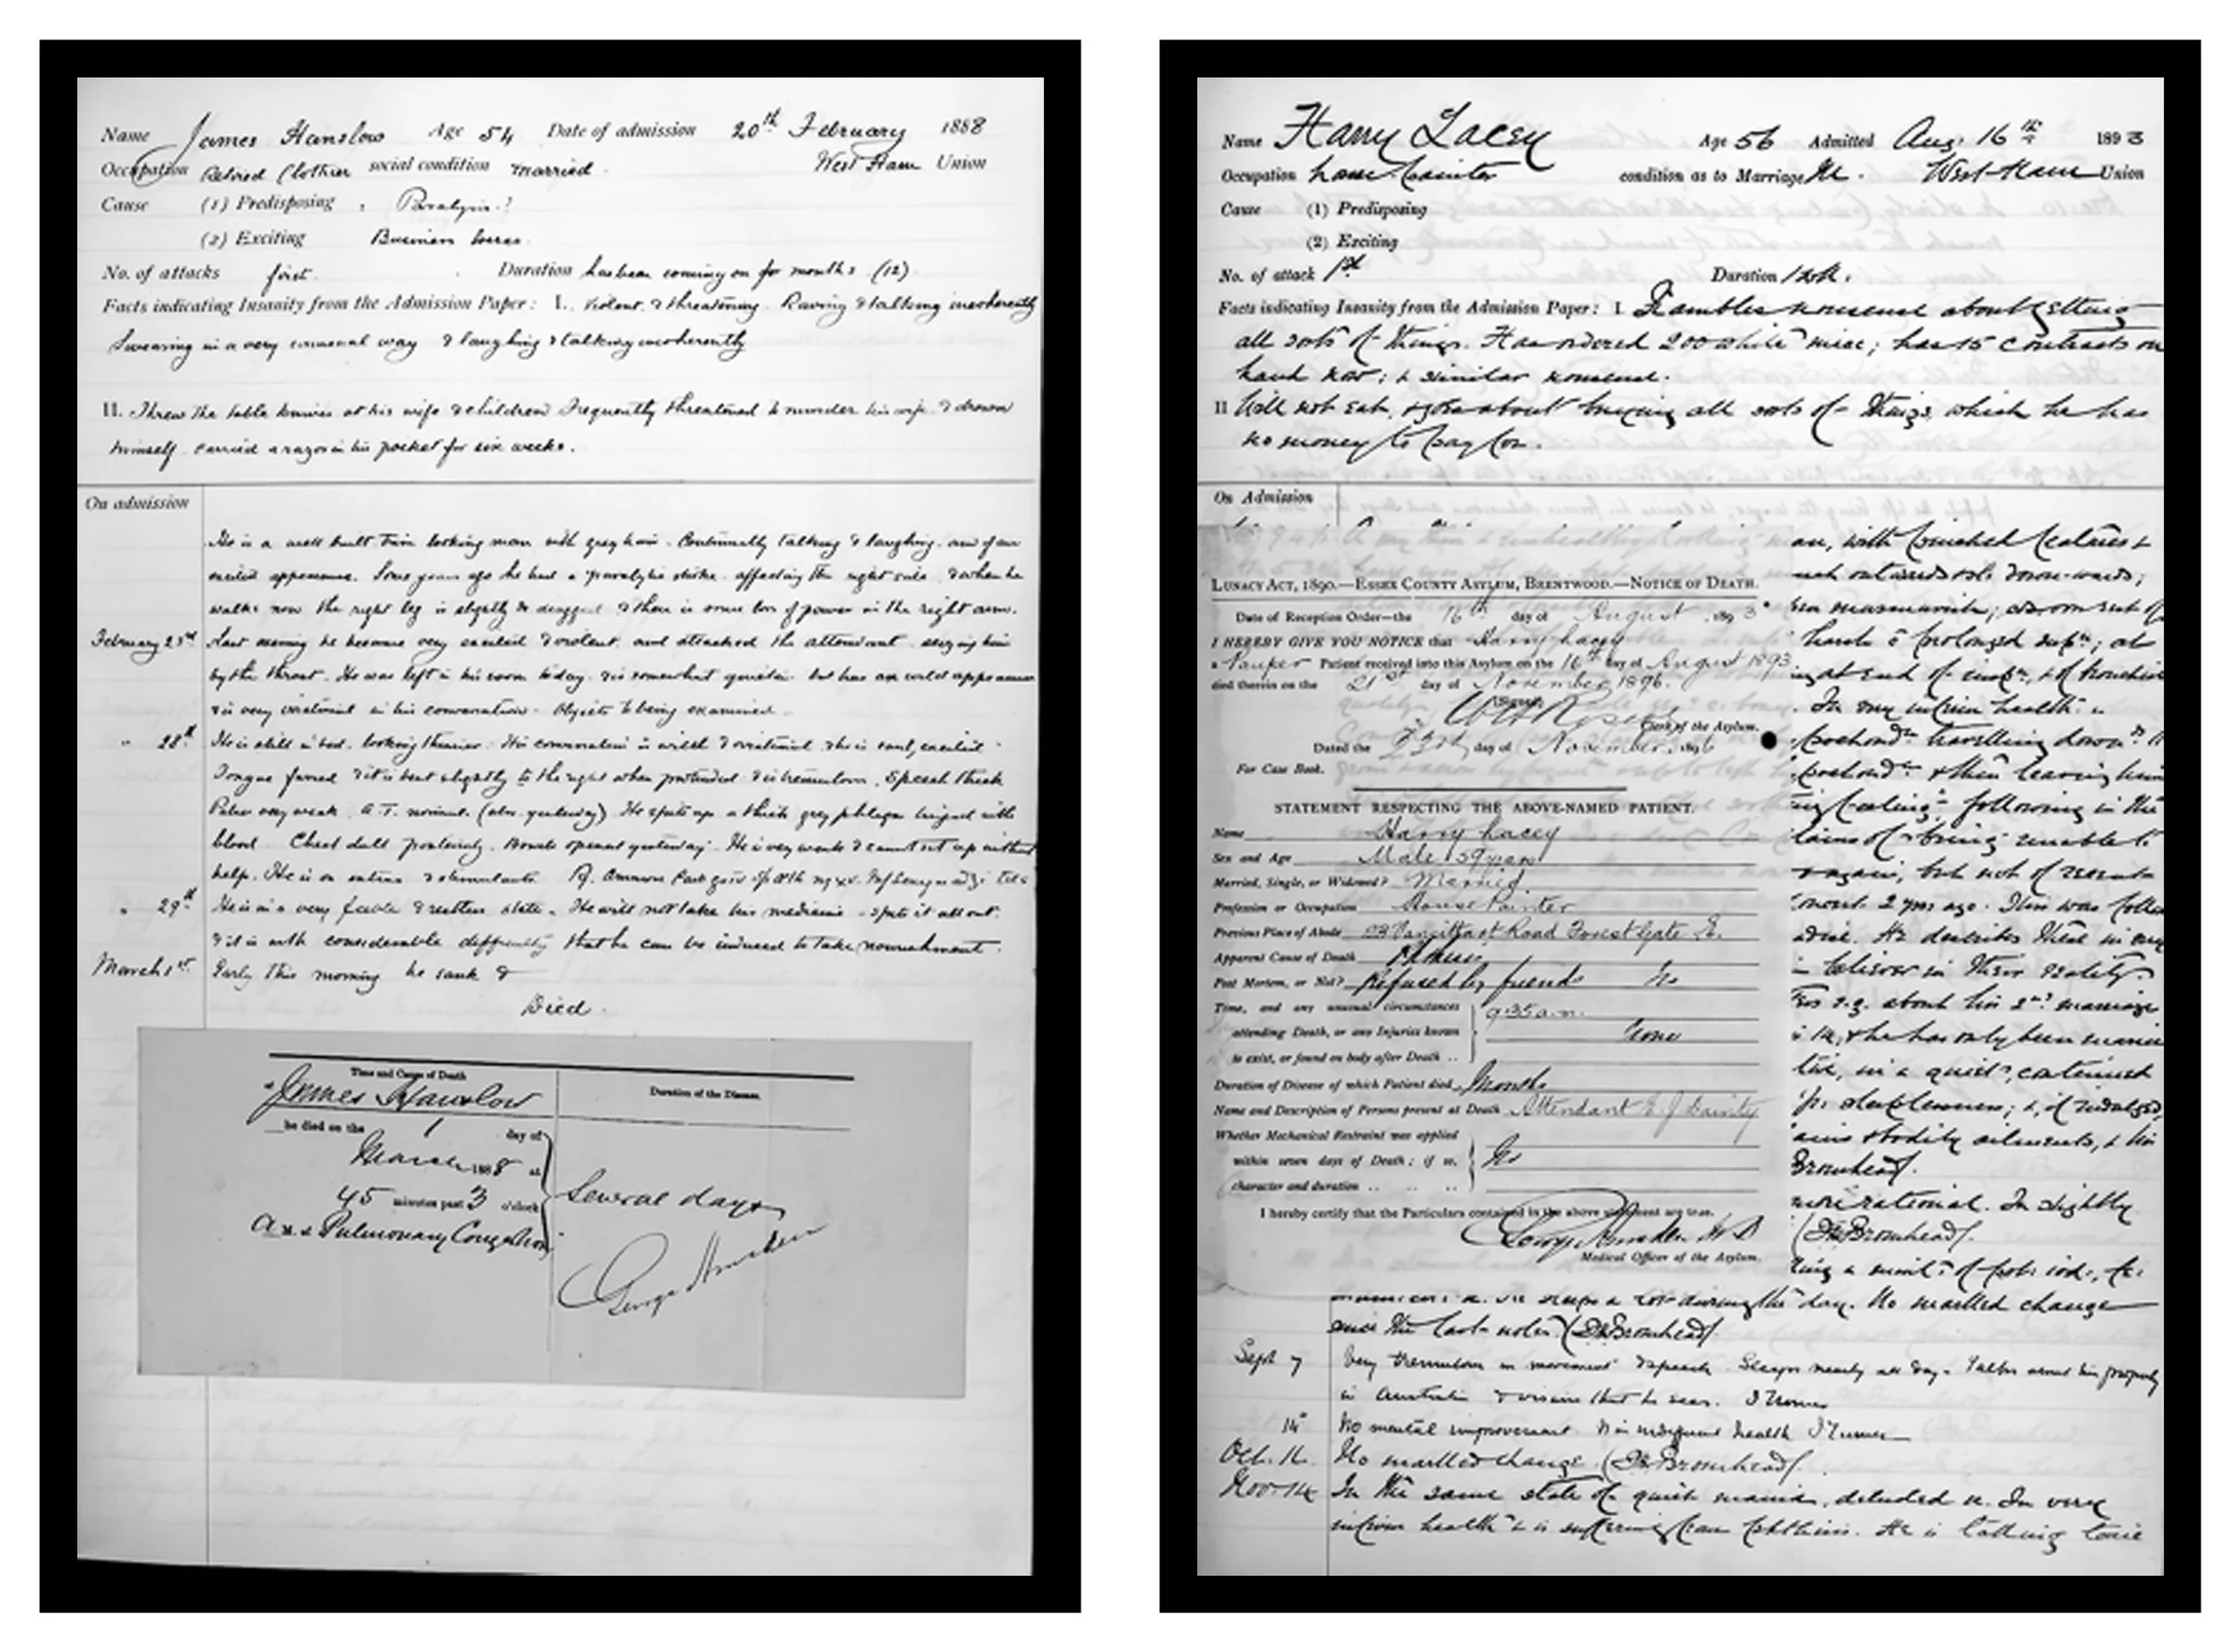 Name James Hanslow Age 54 Date of admission 20th February 1888
Occupation Retired Clothier social condition married West Ham Union
Cause (1) Predisposing Paralysis?
(2) Exciting Business losses
No. of attacks first Duration has been coming on for months (12)
Facts indicating Insanity from the Admission Paper: I. Violent & threatening. Raving & talking incoherently
Swearing in a very unusual way & laughing & talking incoherently
II. Threw the table knives at his wife & children frequently threatened to murder his wife & drown
himself carried a razor in his pocket for six weeks.
On admission
He is a well built looking man with grey hair. Continually talking & laughing and of an
excited appearance. Some years ago he had a paralytic stroke affecting the right side. & when he
walks now the right leg is slightly dragged & there is some loss of power in the right arm.
February 23rd Last evening he became very excited & violent, and attacked the attendant seizing him
by the throat. He was left in his room today & is somewhat quieter but has a wild appearance
& is very irrational in his conversation. Objects to being examined.
" 28th He is still in bed, looking thinner. His conversation is wild & irrational & he is excited.
Tongue furred & it is bent slightly to the right when protruded & is tremulous. Speech thick
Pulse very weak. A.T. normal. (also yesterday) He spits up a thick grey phlegm tinged with
blood. Chest dull posteriorly. Bowels opened yesterday. He is very weak & cannot sit up without
help. He is on extras & stimulants.
" 29th He is in a very feeble & restless state. He will not take his medicine - spits it all out.
& it is with considerable difficulty that he can be induced to take nourishment.
March 1st Early this morning he sank &
Died.
Time and Cause of Death
Duration of the Disease.
James Hanslow
he died on the 1 day of
March 1888 at
45 minutes past 3 o'clock
a.m. Pulmonary Congestion
Several days
George Amsden
Name Harry Lacey Age 56 Admitted Aug. 16th 1893
Occupation house Painter condition as to Marriage M. West Ham Union
Cause (1) Predisposing
(2) Exciting
No. of attack 1st Duration
Facts indicating Insanity from the Admission Paper: I. Rambles nonsense about getting
all sorts of things. Has ordered 200 white mice; has 15 contracts on
hand now; & similar nonsense.
II Will not eat, & goes about buying all sorts of things, which he has
no money to pay for.
On Admission
LUNACY ACT, 1890.—ESSEX COUNTY ASYLUM, BRENTWOOD.—NOTICE OF DEATH.
Date of Reception Order—the 16th day of August 1893
I HEREBY GIVE YOU NOTICE that Harry Lacey
a Pauper Patient received into this Asylum on the 16th day of August 1893
died therein on the 21st day of November 1896.
(Signed)
Clerk of the Asylum.
Dated the 23rd day of November, 1896
For Case Book.
STATEMENT RESPECTING THE ABOVE-NAMED PATIENT.
Name Harry Lacey
Sex and Age Male 59 years
Married, Single, or Widowed? Married
Profession or Occupation House Painter
Previous Place of Abode Vansittart Road Forest Gate E.
Apparent Cause of Death Phthisis
Post Mortem, or Not? Refused by friends No
Time, and any unusual circumstances 9.35 a.m.
attending Death, or any Injuries known None
to exist, or found on body after Death ..
Duration of Disease of which Patient died Months
Name and Description of Persons present at Death Attendant
Whether Mechanical Restraint was applied
within seven days of Death; if so, No
character and duration .. .. ..
I hereby certify that the Particulars contained in the above statement are true.
George Amsden M D
Medical Officer of the Asylum.
an, with pinched features &
downwards;
harsh & prolonged
at end of
In very infirm health
travelling down
& then leaving him
following in the
being unable to
again, but not of recent
2 yrs ago. This was
He describes these in
believer in their reality.
e.g. about his 2nd marriage
& he has only been married
in a quiet, contented
sleeplessness; & if indulged,
& bodily ailments, & his
Bromhead).
more rational. In slightly
(Dr Bromhead).
He sleeps a lot during the day. No marked change
since the last notes. (Dr Bromhead)
Sept 7 Very tremulous in movement & speech. Sleeps nearly all day. Talks about his property
in Australia & visions that he sees. J Turner
14" No mental improvement. Is in indifferent health J Turner
Oct. 16. No marked change. (Dr Bromhead).
Nov. 14 In the same state of quiet mania, deluded. In very
infirm health & is suffering from phthisis. He is taking tonic